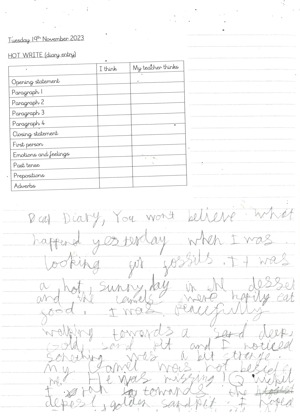 Tuesday 19th November 2023
HOT WRITE (diary entry)
I think
My teacher thinks
Opening statement
Paragraph 1
Paragraph 2
Paragraph 3
Paragraph 4
Closing statement
First person
Emotions and feelings
Past tense
Prepositions
Adverbs
Dear Diary, You wont believe what
happend yesterday when I was
looking for fossils. It was
a hot, sunny day in the desset
and the camels were happily eat
good. I was peacefully
walking towards a sand deep
gold, sand pit and I noticed
something was a bit strange.
my camel was not
me. He was missing! Q
towards the
golden sandpit. I